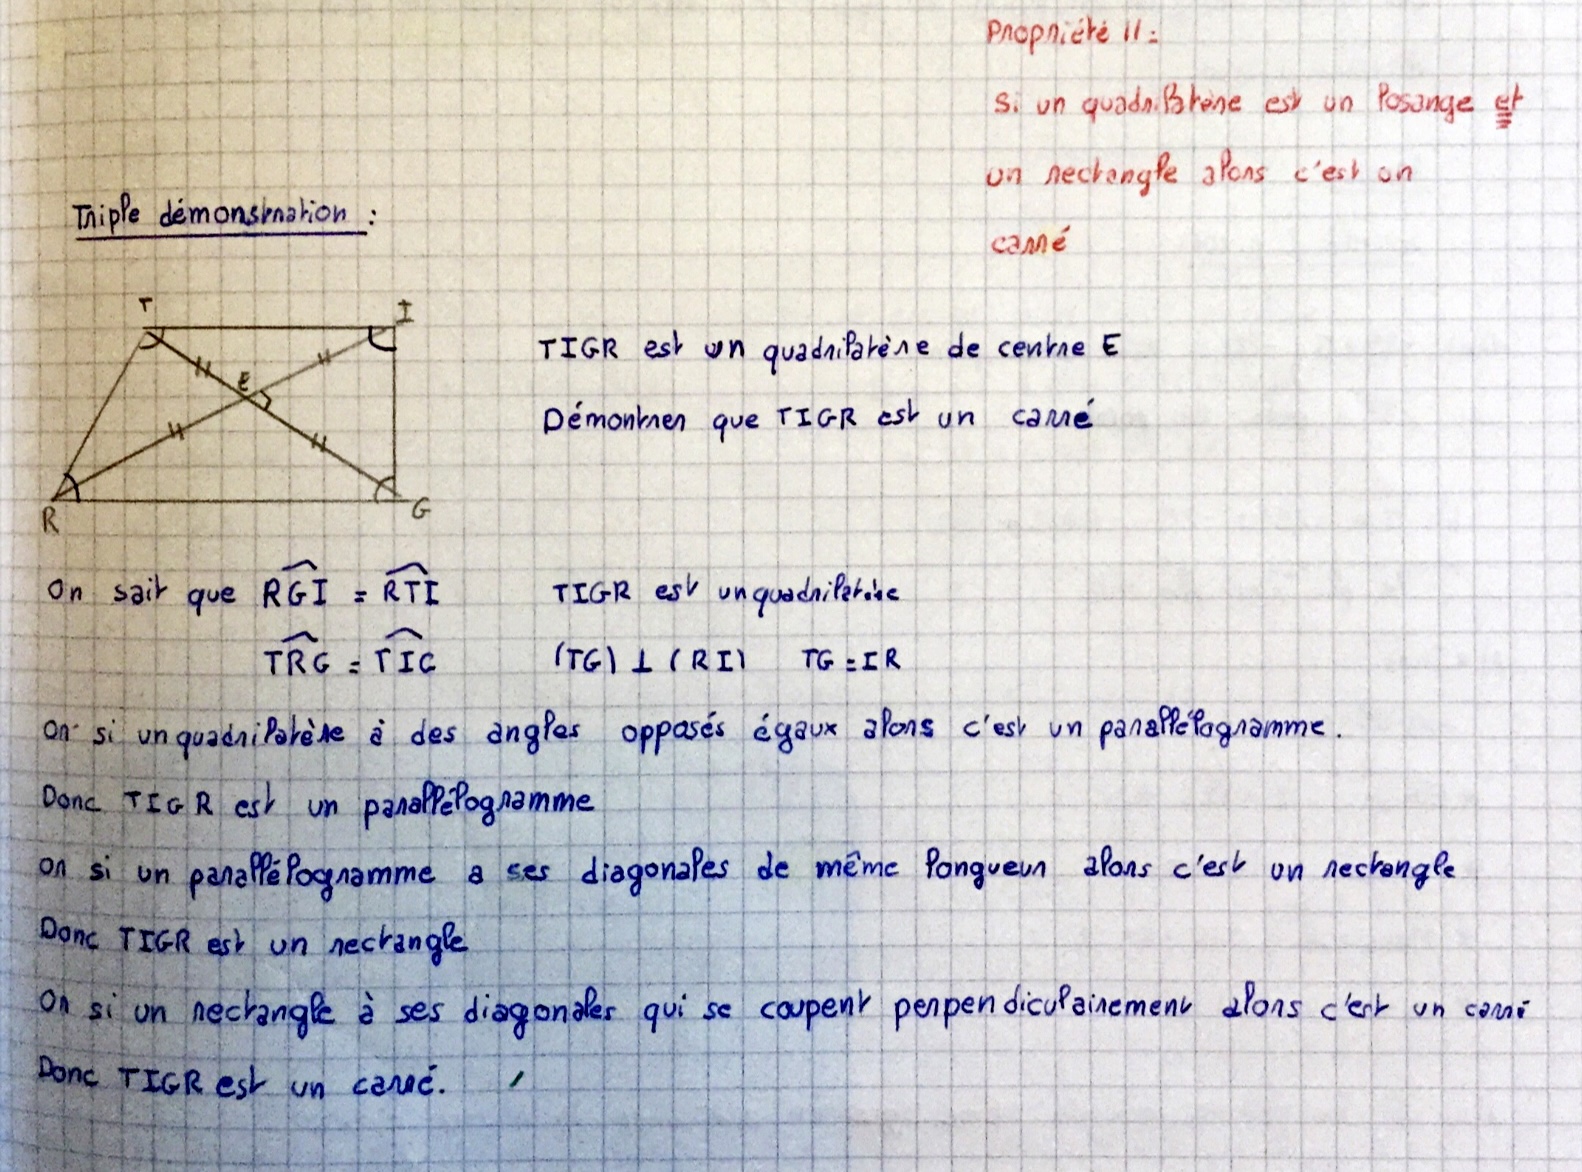 Propriété 11 :
Si un quadrilatère est un losange et
un rectangle alors c'est un
carré
Triple démonstration :
T
I
E
R
G
TIGR est un quadrilatère de centre E
Démontrer que TIGR est un carré
On sait que RGI = RTI TIGR est un quadrilatère
TRG = TIG (TG) ⊥ (RI) TG = IR
Or si un quadrilatère à des angles opposés égaux alors c'est un parallélogramme.
Donc TIGR est un parallélogramme
Or si un parallélogramme a ses diagonales de même longueur alors c'est un rectangle
Donc TIGR est un rectangle
Or si un rectangle à ses diagonales qui se coupent perpendiculairement alors c'est un carré
Donc TIGR est un carré.